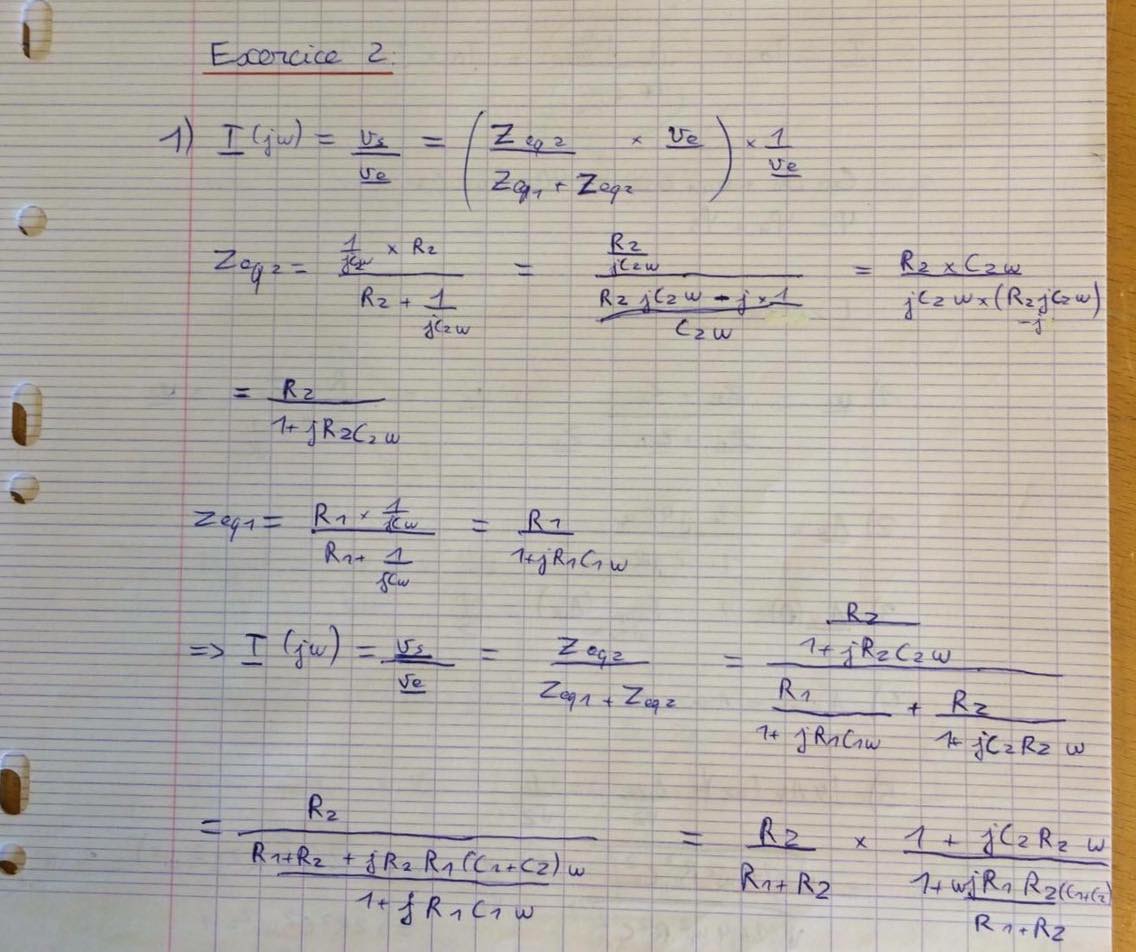 Exercice 2.
1) T(jω) = vs/ve = (Zeq2/(Zeq1 + Zeq2) × ve) × 1/ve
Zeq2 = (1/(jC2ω) × R2)/(R2 + 1/(jC2ω)) = (R2/(jC2ω))/((R2 jC2ω - j × 1)/(C2ω)) = (R2 × C2ω)/(jC2ω × (R2 jC2ω - j))
= R2/(1 + jR2C2ω)
Zeq1 = (R1 × 1/(jCω))/(R1 + 1/(jCω)) = R1/(1+jR1C1ω)
=> T(jω) = vs/ve = Zeq2/(Zeq1 + Zeq2) = (R2/(1 + jR2C2ω))/(R1/(1 + jR1C1ω) + R2/(1+ jC2R2 ω))
= R2/((R1+R2 + jR2R1(C1+C2)ω)/(1 + jR1C1ω)) = R2/(R1+R2) × (1 + jC2R2 ω)/(1+ωjR1R2(C1+C2)/(R1+R2))